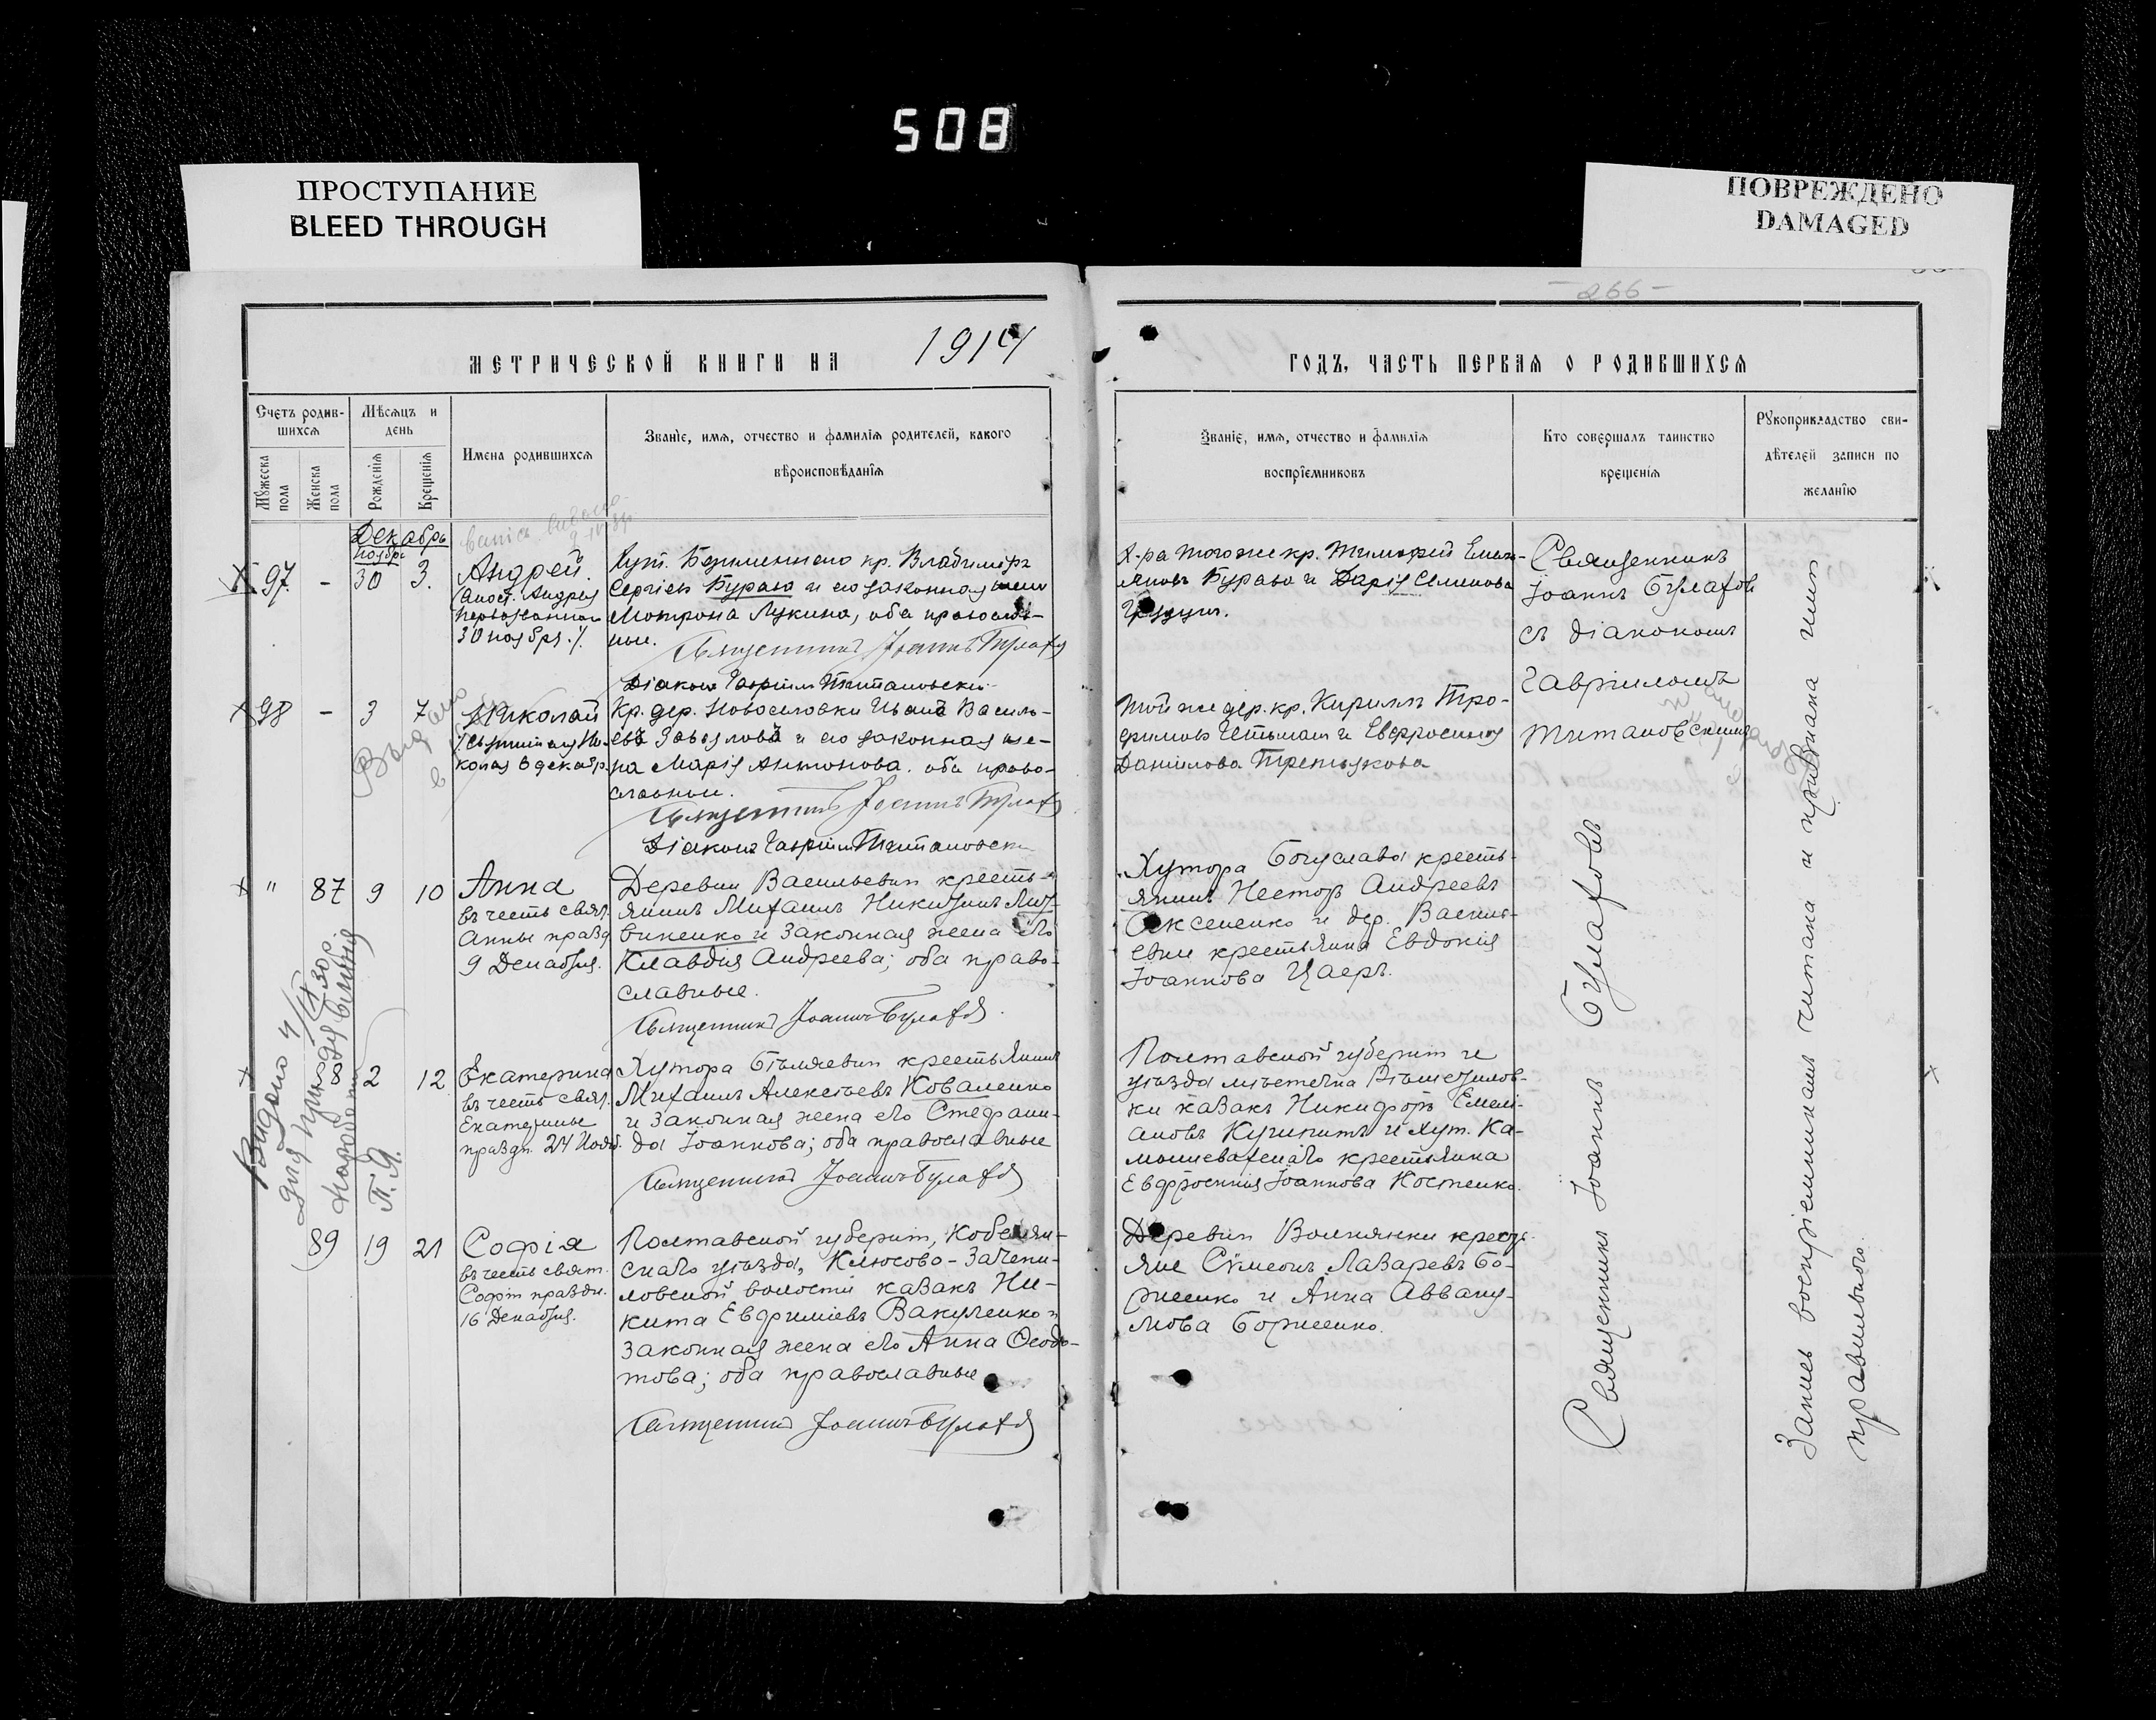 508
ПРОСТУПАНИЕ
BLEED THROUGH
ПОВРЕЖДЕНО
DAMAGED
- 266 -
МЕТРИЧЕСКОЙ КНИГИ НА 1914
ГОДЪ, ЧАСТЬ ПЕРВАЯ О РОДИВШИХСЯ
Счетъ родив-
шихся
Мужеска
пола
Женска
пола
Мѣсяцъ и
день
Рожденія
Крещенія
Имена родившихся
Званіе, имя, отчество и фамилія родителей, какого
вѣроисповѣданія
Званіе, имя, отчество и фамилія
воспріемниковъ
Кто совершалъ таинство
крещенія
Рукоприкладство сви-
дѣтелей записи по
желанію
Декабрь
Ноябрь
97. - 30 3.
Андрей.
Апост. Андрея
Первозваннаго
30 ноября.
Хут. Безименнаго кр. Владиміръ
Сергіевъ Бураго и его законная жена
Мотрона Лукина, оба православ-
ные.
Священникъ Іоаннъ Булаховъ
Діаконъ Гавріилъ Титановскій
Х-ра того же кр. Тимофей Емель-
яновъ Бураго и Дарія Семенова
98 - 3 7
Николай
Святителя Ни-
колая 6 декабр.
Кр. дер. Новоселовки Иванъ Василь-
евъ Завяловъ и его законная же-
на Марія Антонова. оба право-
славные.
Священникъ Іоаннъ Булаховъ
Діаконъ Гавріилъ Титановскій
Той же дер. кр. Кириллъ Тро-
фимовъ Гетьман и Евфросинія
Данилова Третьякова
" 87 9 10
Анна
въ честь свят.
Анны празд
9 Декабря.
Деревни Васильевки кресть-
янинъ Михаилъ Никитинъ Лит-
виненко и законная жена его
Клавдія Андреева; оба право-
славные.
Священникъ Іоаннъ Булаховъ
Хутора Богуслава кресть-
янинъ Несторъ Андреевъ
Аксененко и дер. Василь-
евки крестьянка Евдокія
Іоаннова Цаеръ.
88 2 12
Екатерина
въ честь свят.
Екатерины
праздн. 24 Нояб.
Хутора Бѣляевки крестьянинъ
Михаилъ Алексѣевъ Коваленко
и законная жена его Стефани-
да Іоаннова; оба православные
Священникъ Іоаннъ Булаховъ
Полтавской губерніи и
уѣзда мѣстечка Рѣшетилов-
ки казакъ Никифоръ Емелі-
ановъ и хут. Ка-
крестьянка
Евфросинія Іоаннова Костенко.
89 19 21
Софія
въ честь свят.
Софіи праздн.
16 Декабря.
Полтавской губерніи, Кобеляк-
скаго уѣзда, Клюсово-Зачепи-
ловской волости казакъ Ни-
кита Евфиміевъ Вакуленко и
законная жена его Анна Ѳеодо-
това; оба православные
Священникъ Іоаннъ Булаховъ
Деревни Волнянки кресть-
яне Сѵмеонъ Лазаревъ Бо-
рисенко и Анна Авваку-
мова Борисенко.
Священникъ
Іоаннъ Булаховъ
съ діакономъ
Гавріиломъ
Титановскимъ
Священникъ Іоаннъ Булаховъ
Запись воспріемниками читана и признана ими
правильною.